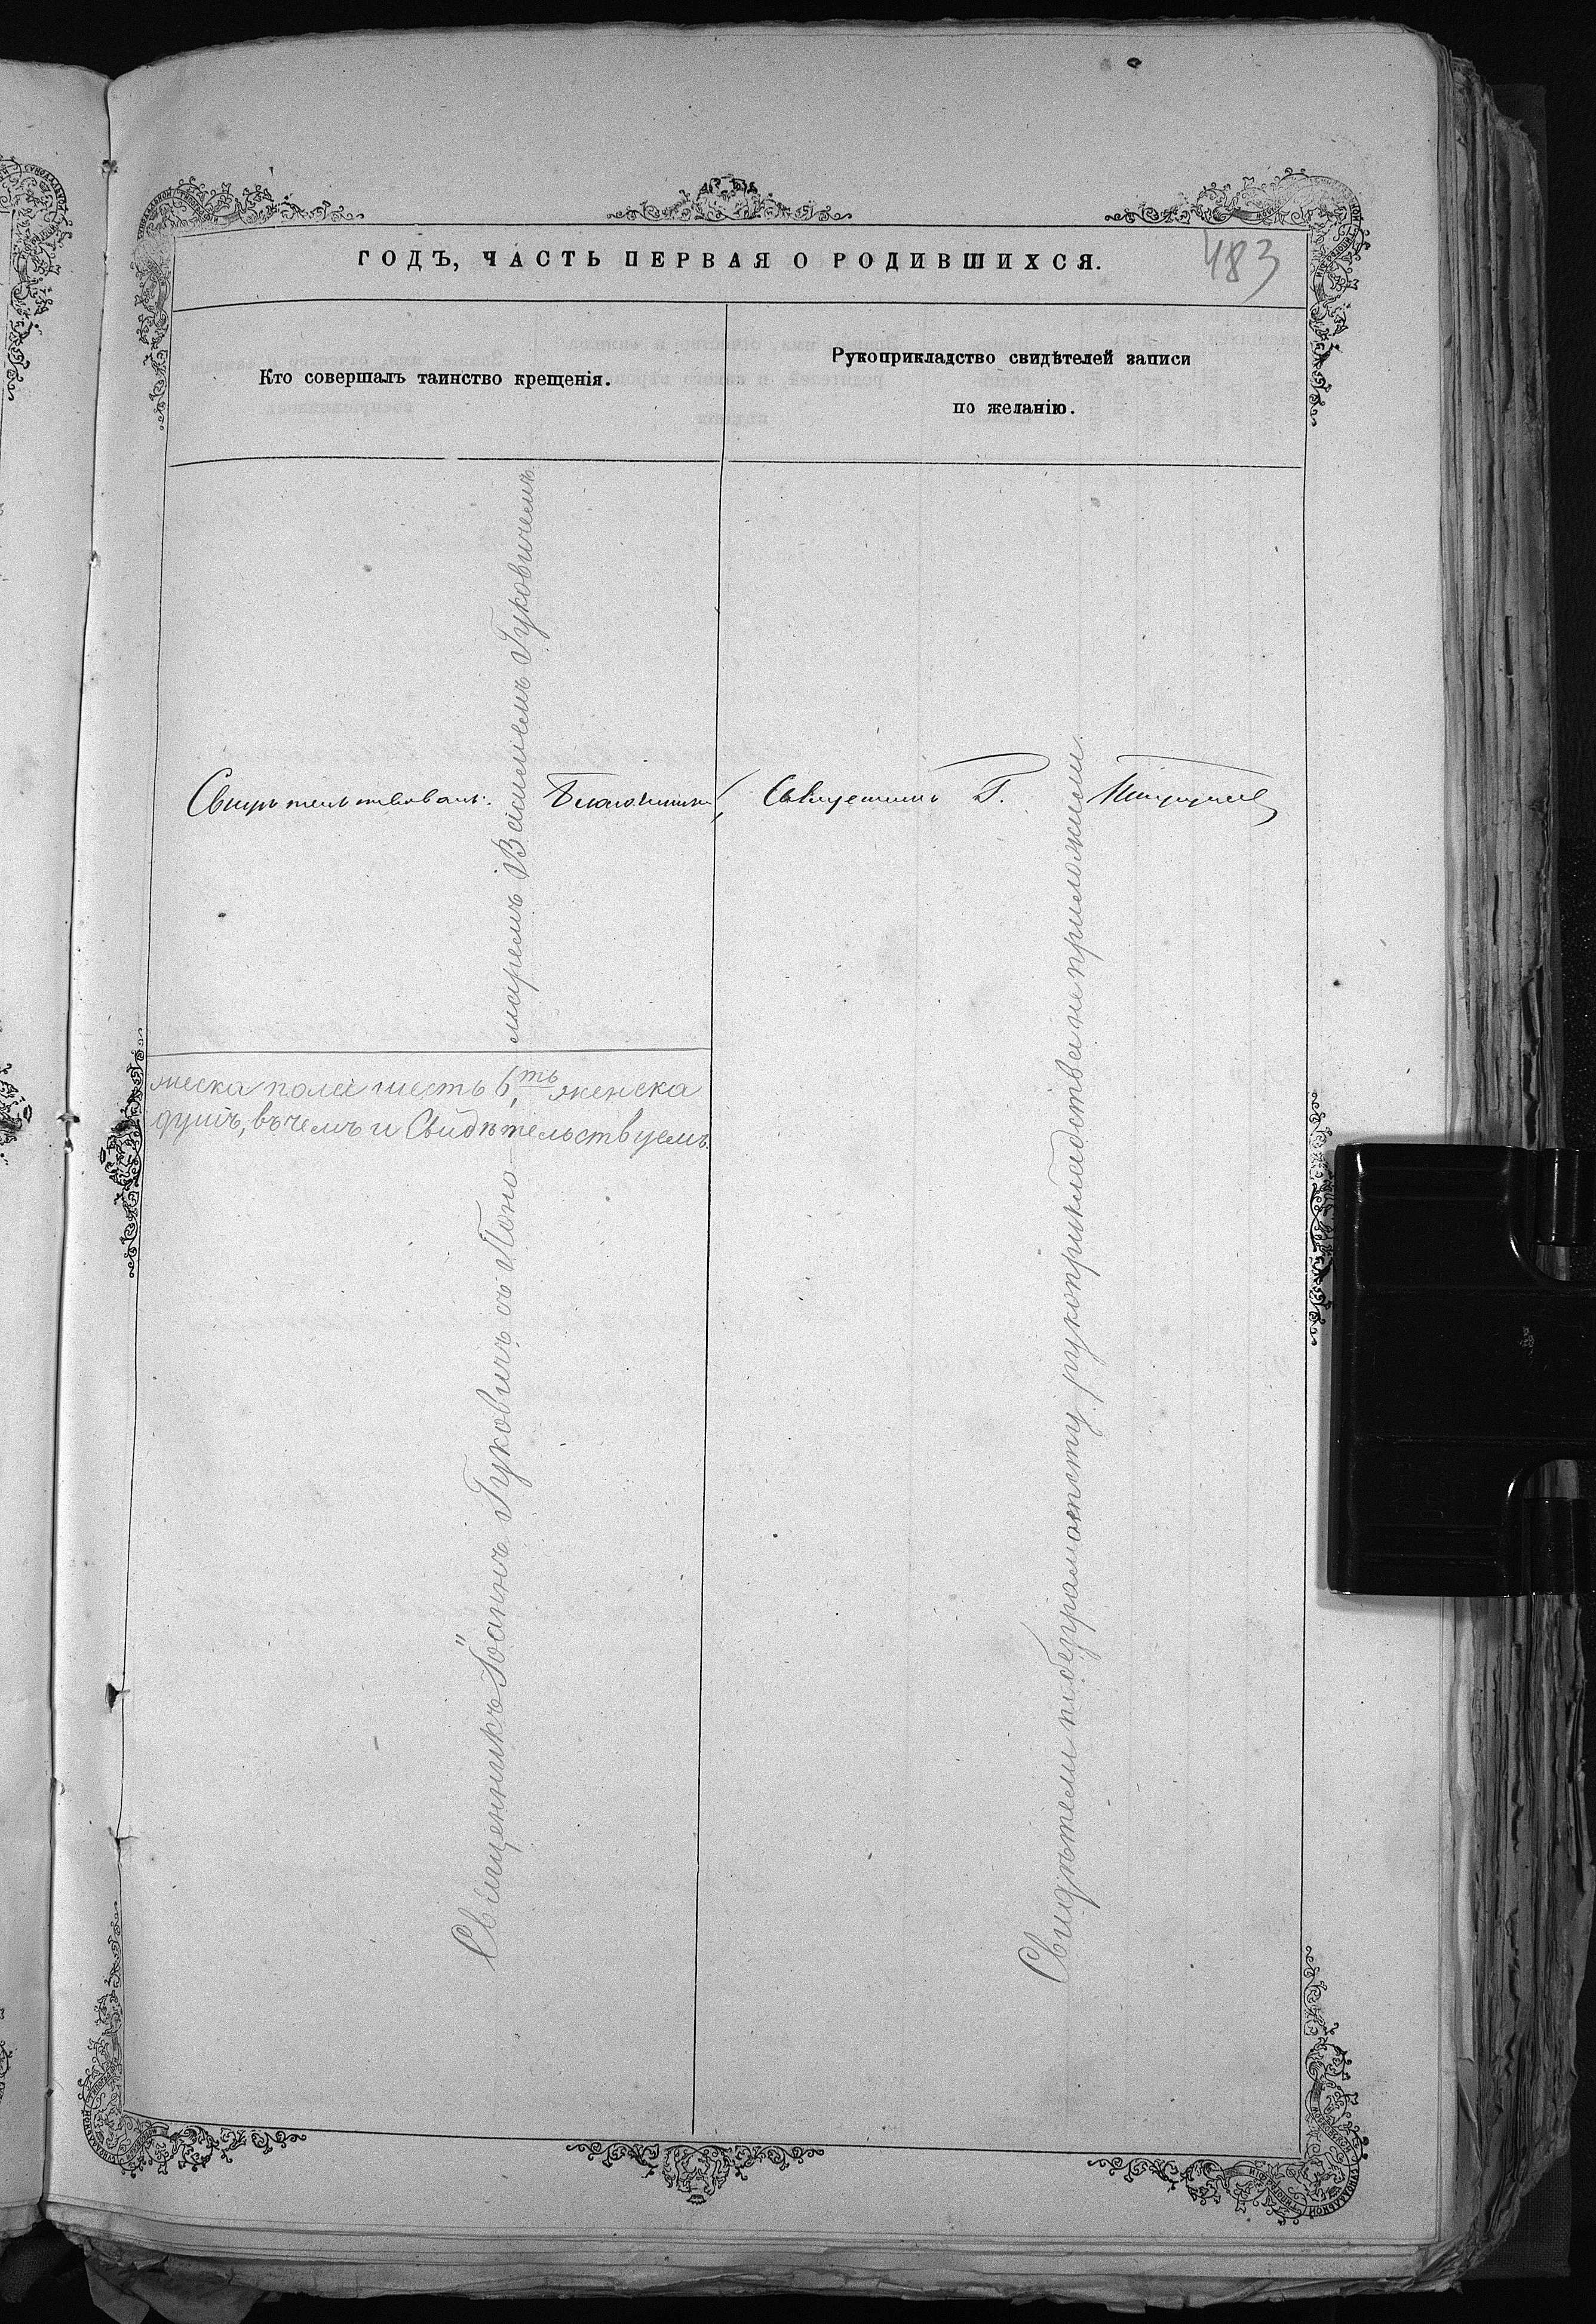 ГОДЪ, ЧАСТЬ ПЕРВАЯ О РОДИВШИХСЯ.
483
Кто совершалъ таинство крещенія.
Рукоприкладство свидѣтелей записи
по желанію.
Священникъ Іоаннъ Гуковичъ съ Поно-
маремъ Василіемъ Гуковичемъ
Свидѣтельствовалъ: Благочинный, Священникъ Г.
жеска пола шесть 6,ть женска
душъ, въ чемъ и Свидѣтельствуемъ.
Свидѣтели по безграмотству рукоприкладства не приложили